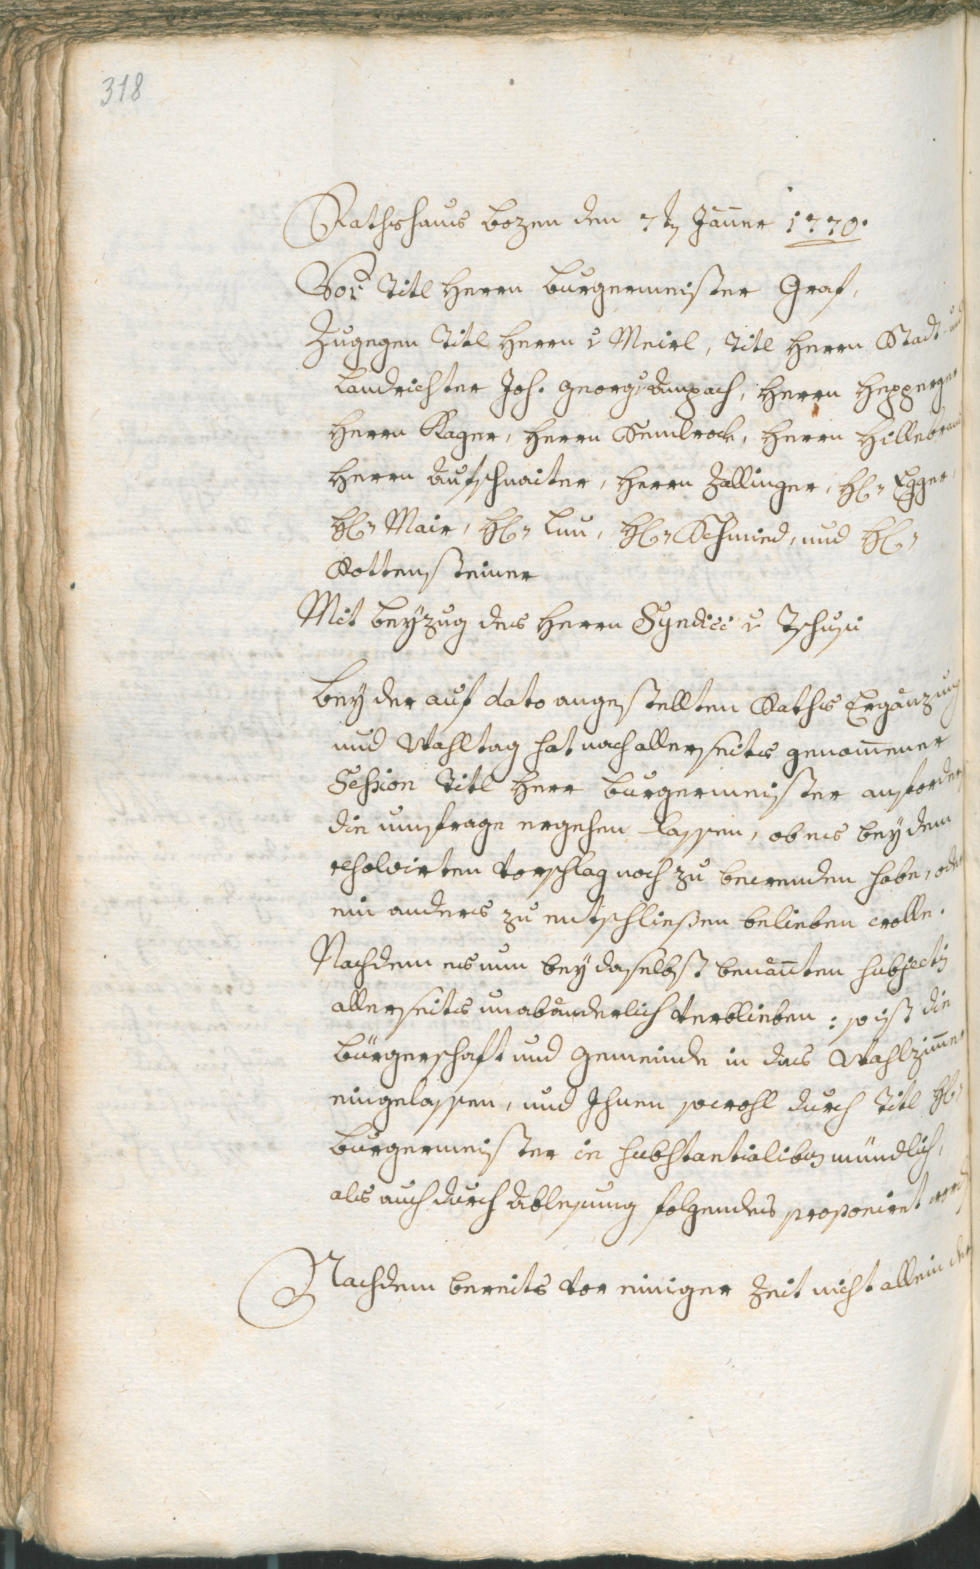 318
Rathshaus Bozen den 7ten Jäner 1770.
Vor Titl Herrn Burgermeister Graf,
Zugegen Titl Herrn v Meirl, Titl Herrn Stadt- und
Landrichter Joh. Georg v Anpach, Herrn Hepperger
Herrn Kager, Herrn Semlrock, Herrn Hillebrand
Herrn Aufschnaiter, Herrn Zallinger, H: Egger,
H: Mair, H: Lun, H: Schmied, und H:
Rottensteiner
Mit Beÿzug des Herrn Syndici v Tschusi
Beÿ der auf dato angestellten Raths Ergänzung
und Wahltag hat nach allerseits genomener
Session Titl Herr Burgermeister anfordert
die umfrage ergehen lassen, ob es beÿ dem
resolvirten Vorschlag noch zu bewenden habe, oder
ein anders zu entschließen belieben wolle.
Nachdem es nun beÿ daselbst benanten subjectis
allerseits unabänderlich verblieben: so ist die
Bürgerschaft und Gemeinde in das Wahlzimer
eingelassen, und Ihnen sowohl durch Titl H:
Burgermeister in substantialibus mündlich,
als auch durch Ablesung folgendes proponiret word
Nachdem bereits vor einiger Zeit nicht allein der